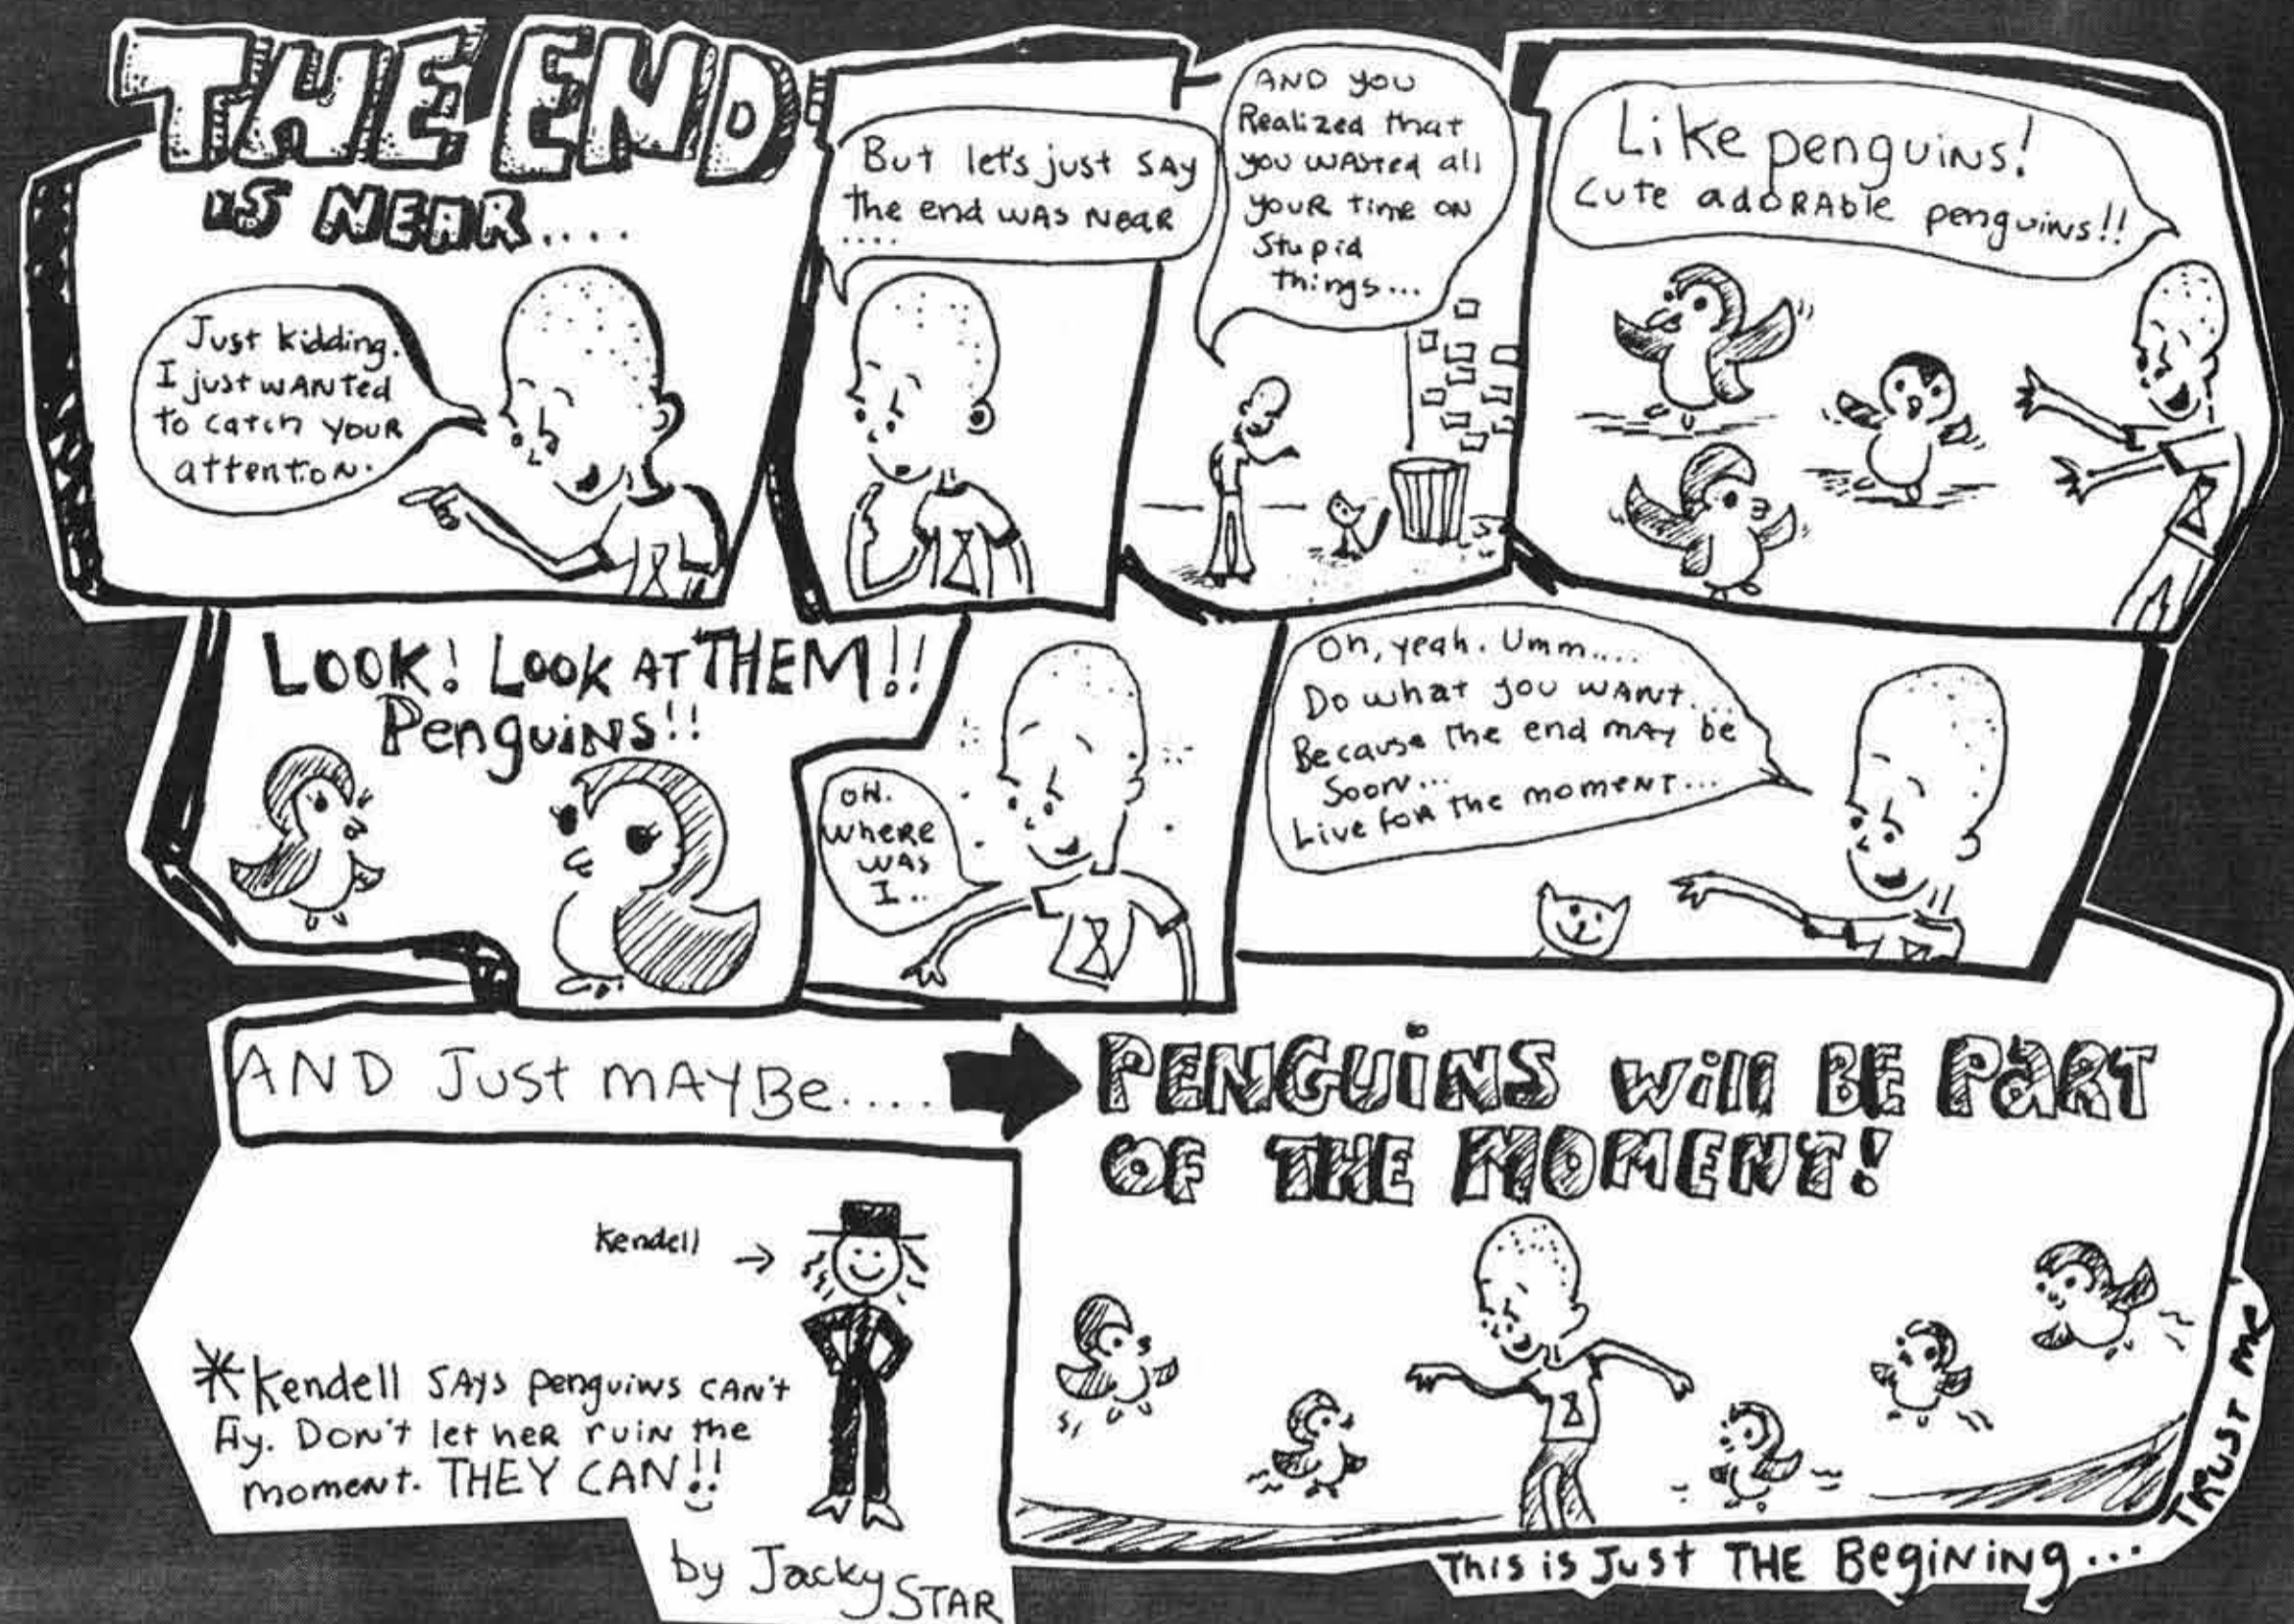 THE END
IS NEAR....
Just kidding.
I just WANTed
to catch YOUR
attention.
But let's just SAY
the end WAS NeaR
....
AND you
Realized that
you WASTed all
YOUR time ON
Stupid
things...
Like penguins!
Cute adORAble penguins!!
LOOK! Look AT THEM!!
PenguiNS!!
OH.
wheRe
WAS
I..
Oh, yeah. Umm....
Do what you WANT...
Because the end MAY be
Soon...
Live foR the momeNT...
AND Just mAYBe....
PENGUiNS Will BE PaRT
OF THE MOMENT!
Kendell →
*Kendell SAYS penguiNS CAN'T
fly. DON'T let heR ruiN the
momeNt. THEY CAN!!
by Jacky STAR
This is Just THE BegiNiNg...
TRUST Me